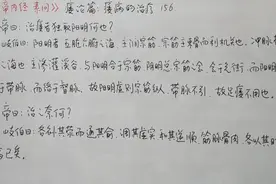 帝内经 素问》 痿论篇 痿病的治疗 156
帝曰：治痿者独取阳明何也？
岐伯曰：阳明者五脏六腑之海，主润宗筋，宗筋主束骨而利机关也。冲脉
之海也，主渗灌溪谷，与阳明合于宗筋，阴阳总宗筋之会，会于气街，而阳明
于带脉，而络于督脉，故阳明虚则宗筋纵，带脉不引，故足痿不用也。
帝曰：治之奈何？
岐伯曰：各补其荥而通其俞，调其虚实，和其逆顺，筋脉骨肉，各以其时
病已矣。